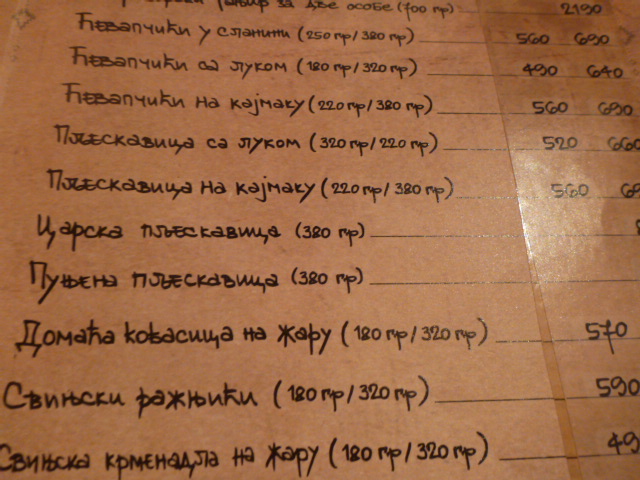 за две особе (700 гр) 2190
Ћевапчићи у сланини (250 гр/380 гр) 560 690
Ћевапчићи са луком (180 гр/320 гр) 490 640
Ћевапчићи на кајмаку (220 гр/380 гр) 560 690
Пљескавица са луком (320 гр/220 гр) 520 660
Пљескавица на кајмаку (220 гр/380 гр) 560
Царска пљескавица (380 гр)
Пуњена пљескавица (380 гр)
Домаћа кобасица на жару (180 гр/320 гр) 570
Свињски ражњићи (180 гр/320 гр) 590
Свињска крменадла на жару (180 гр/320 гр) 49